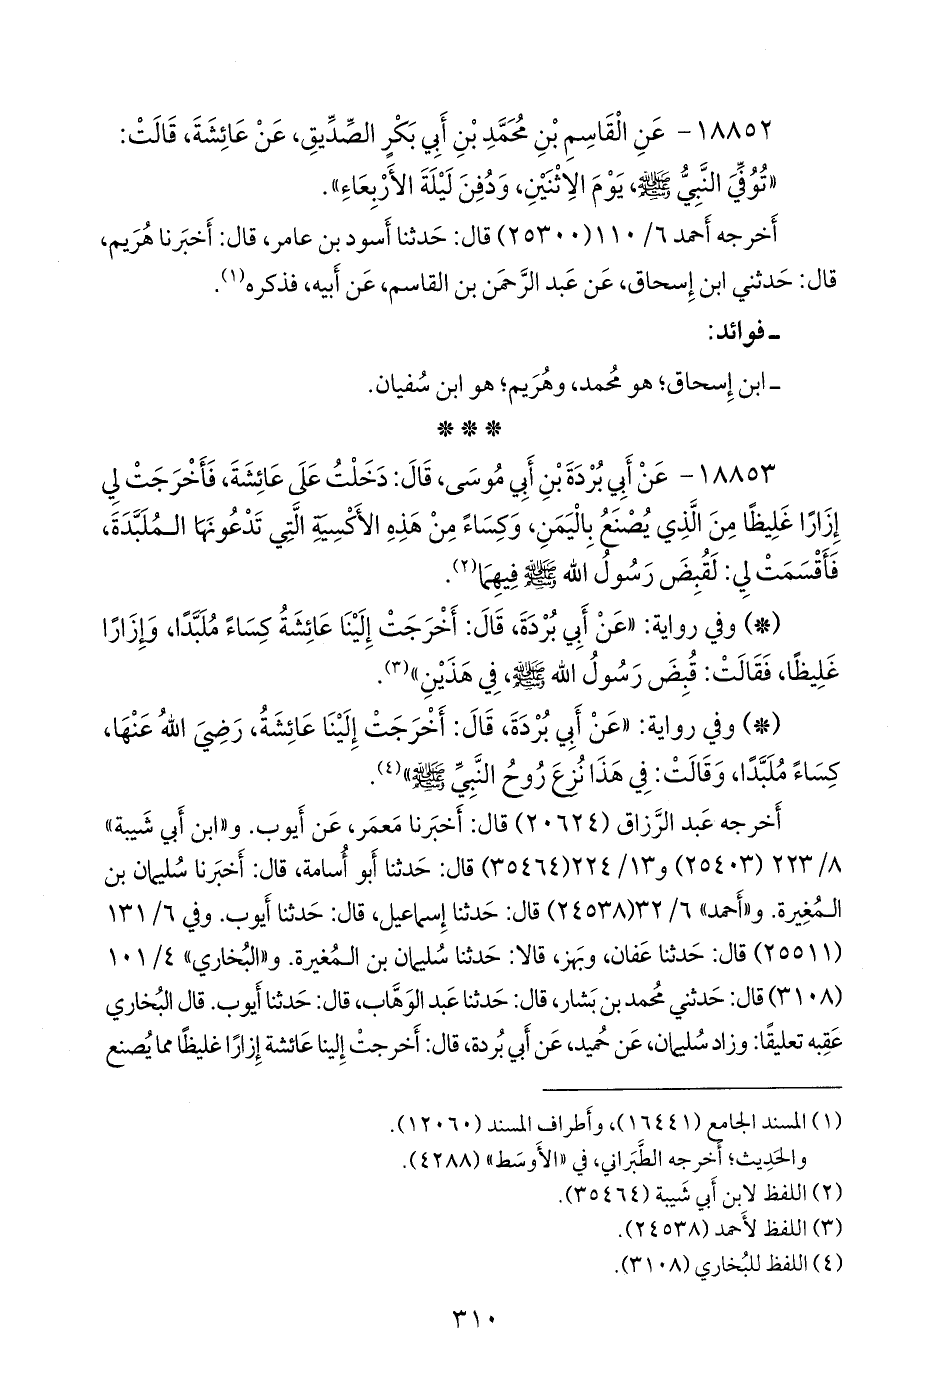 ١٨٨٥٢- عَنِ الْقَاسِمِ بْنِ مُحَمَّدِ بْنِ أَبِي بَكْرٍ الصِّدِّيقِ، عَنْ عَائِشَةَ، قَالَتْ:
«تُوُفِّيَ النَّبِيُّ ﷺ، يَوْمَ الِاثْنَيْنِ، وَدُفِنَ لَيْلَةَ الأَرْبِعَاءِ».
أَخرجه أَحمد ٦/ ١١٠(٢٥٣٠٠) قال: حَدثنا أَسود بن عامر، قال: أَخبَرنا هُرَيم،
قال: حَدثني ابن إِسحاق، عَن عَبد الرَّحمَن بن القاسم، عَن أَبيه، فذكره(١).
ـ فوائد:
ـ ابن إِسحاق؛ هو مُحمد، وهُرَيم؛ هو ابن سُفيان.
* * *
١٨٨٥٣- عَنْ أَبِي بُرْدَةَ بْنِ أَبِي مُوسَى، قَالَ: دَخَلْتُ عَلَى عَائِشَةَ، فَأَخْرَجَتْ لِي
إِزَارًا غَلِيظًا مِنَ الَّذِي يُصْنَعُ بِالْيَمَنِ، وَكِسَاءً مِنْ هَذِهِ الأَكْسِيَةِ الَّتِي تَدْعُونَهَا الـمُلَبَّدَةَ،
فَأَقْسَمَتْ لِي: لَقُبِضَ رَسُولُ الله ﷺ فِيهِمَا(٢).
(*) وفي رواية: «عَنْ أَبِي بُرْدَةَ، قَالَ: أَخْرَجَتْ إِلَيْنَا عَائِشَةُ كِسَاءً مُلَبَّدًا، وَإِزَارًا
غَلِيظًا، فَقَالَتْ: قُبِضَ رَسُولُ الله ﷺ، فِي هَذَيْنِ»(٣).
(*) وفي رواية: «عَنْ أَبِي بُرْدَةَ، قَالَ: أَخْرَجَتْ إِلَيْنَا عَائِشَةُ، رَضِيَ اللهُ عَنْهَا،
كِسَاءً مُلَبَّدًا، وَقَالَتْ: فِي هَذَا نُزِعَ رُوحُ النَّبِيِّ ﷺ»(٤).
أَخرجه عَبد الرَّزاق (٢٠٦٢٤) قال: أَخبَرنا مَعمَر، عَن أَيوب. و«ابن أَبي شَيبة»
٨/ ٢٢٣ (٢٥٤٠٣) و١٣/ ٢٢٤(٣٥٤٦٤) قال: حَدثنا أَبو أُسامة، قال: أَخبَرنا سُليمان بن
الـمُغيرة. و«أَحمد» ٦/ ٣٢(٢٤٥٣٨) قال: حَدثنا إِسماعيل، قال: حَدثنا أَيوب. وفي ٦/ ١٣١
(٢٥٥١١) قال: حَدثنا عَفان، وبَهز، قالا: حَدثنا سُليمان بن الـمُغيرة. و«البُخاري» ٤/ ١٠١
(٣١٠٨) قال: حَدثني مُحمد بن بَشار، قال: حَدثنا عَبد الوَهَّاب، قال: حَدثنا أَيوب. قال البُخاري
عَقِبه تعليقًا: وزاد سُليمان، عَن حُميد، عَن أَبي بُردة، قال: أَخرجتْ إِلينا عائشة إِزارًا غليظًا مما يُصنع
(١) المسند الجامع (١٦٤٤١)، وأَطراف المسند (١٢٠٦٠).
والحَدِيث؛ أَخرجه الطَّبَراني، في «الأَوسَط» (٤٢٨٨).
(٢) اللفظ لابن أَبي شَيبة (٣٥٤٦٤).
(٣) اللفظ لأَحمد (٢٤٥٣٨).
(٤) اللفظ للبُخاري (٣١٠٨).
٣١٠